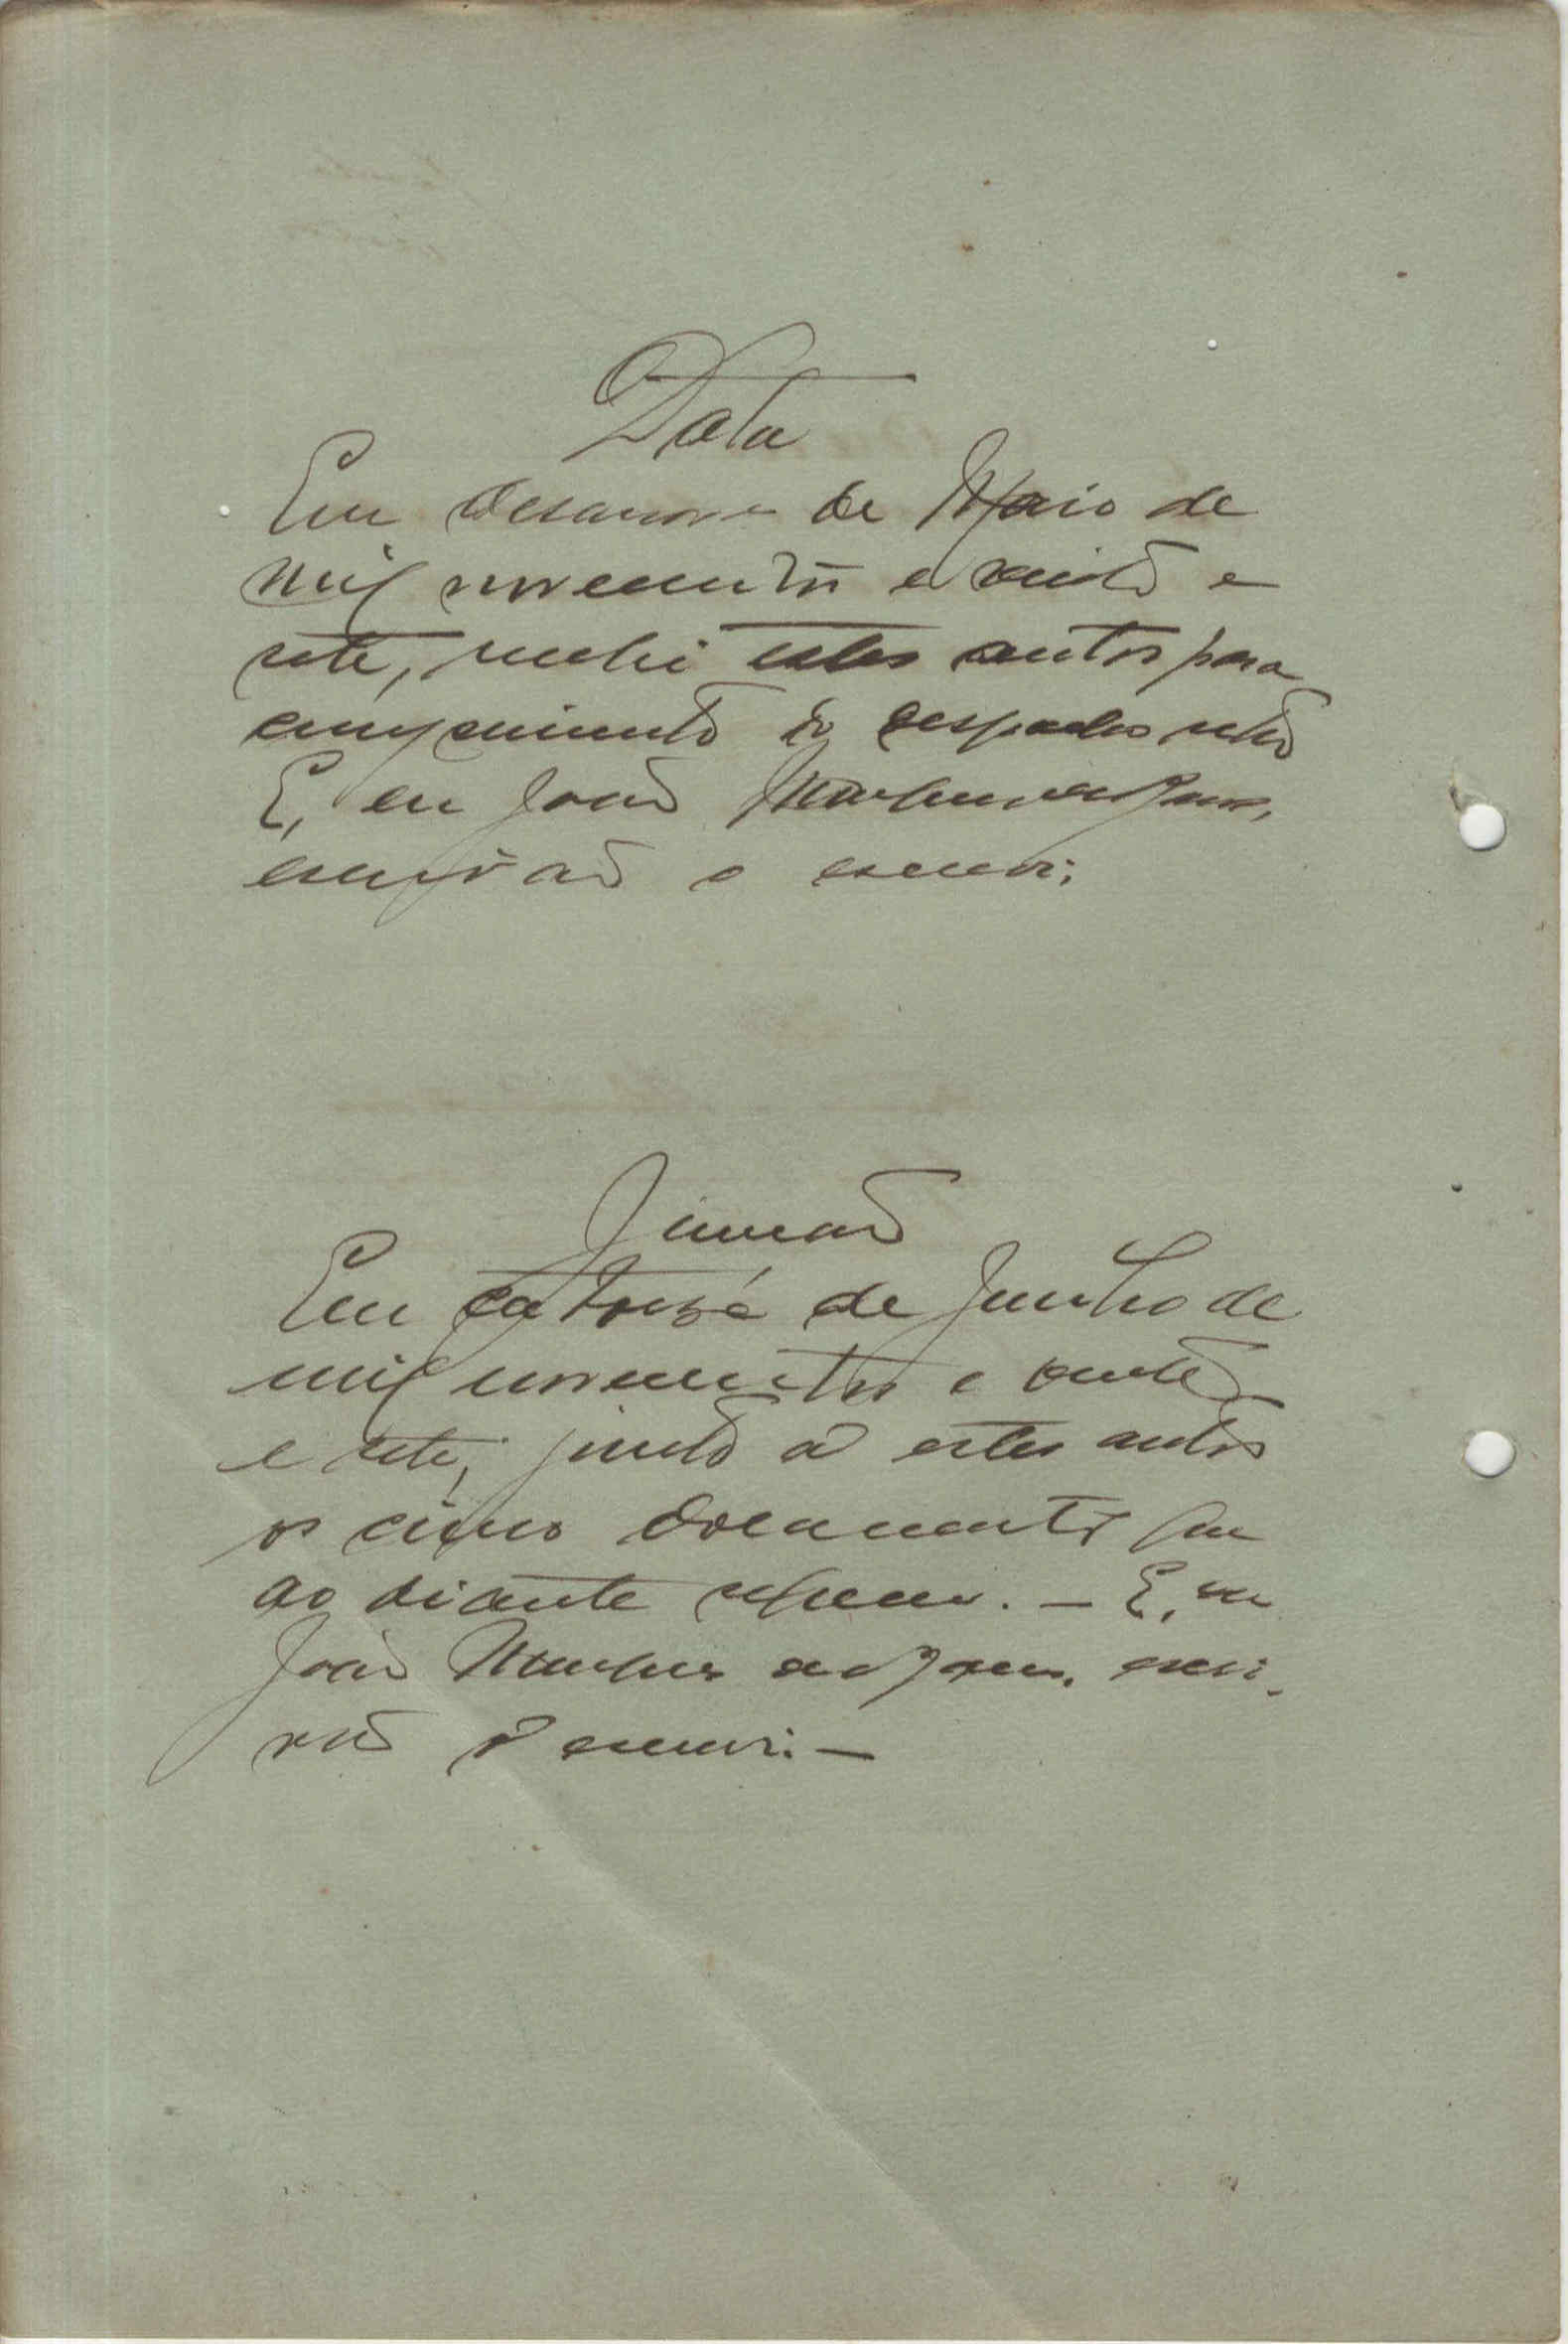 Data
Em desanove de Maio de
mil novecentos e vinte e
sete, recebi estes autos para
cumprimento do despacho retro
E, eu João Marques
escrivão o escrevi;
Juncão
Em catorse de Junho de
mil novecentos e vinte
e sete, junto a estes autos
os cinco documentos que
ao diante seguem. — E, eu
João Marques escri-
vão o escrevi. —